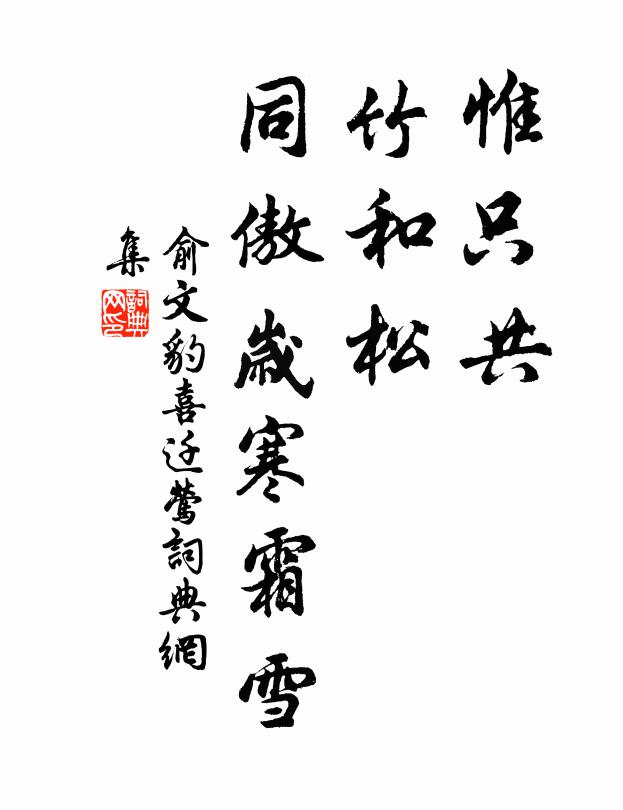 惟只共
竹和松
同傲歲寒霜雪
俞文豹喜迁鶯詞典網
集
詞典
网印